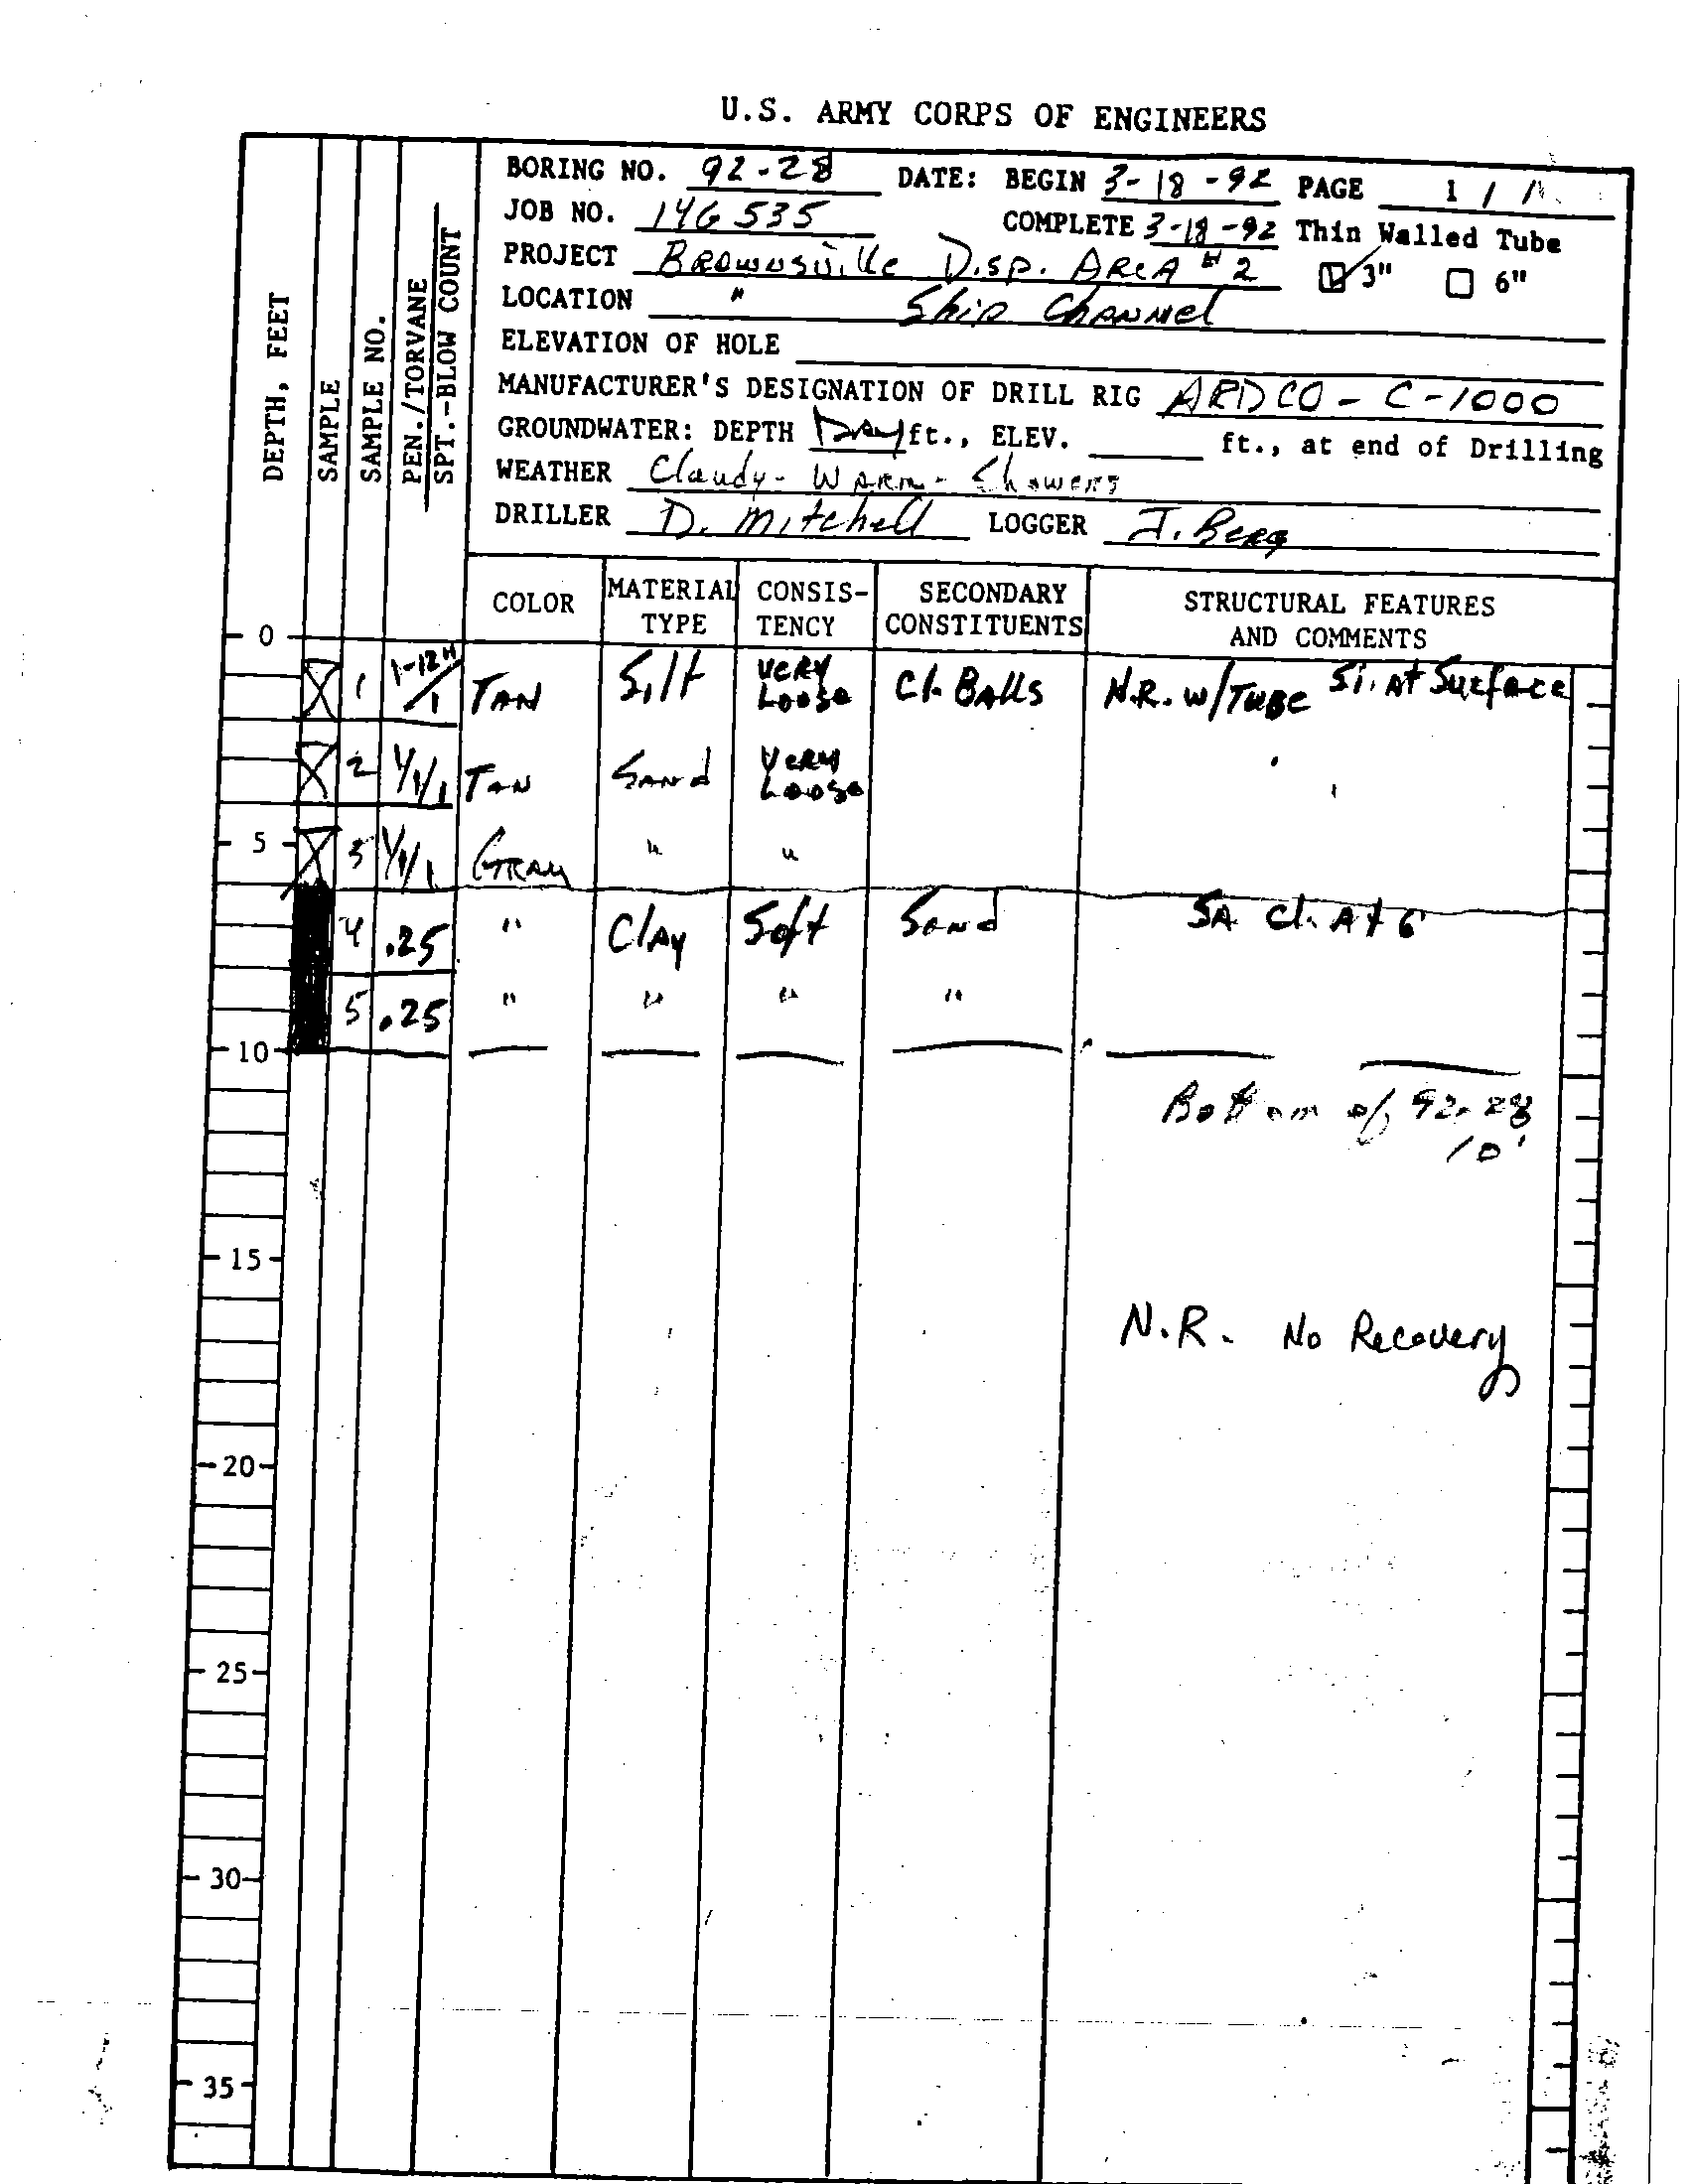 U.S. ARMY CORPS OF ENGINEERS
BORING NO. 92-28 DATE: BEGIN 3-18-92 PAGE 1 / 1
JOB NO. 14G 535 COMPLETE 3-18-92 Thin Walled Tube
PROJECT Brownsville Disp. Area #2 3" 6"
LOCATION " Ship Channel
ELEVATION OF HOLE
MANUFACTURER'S DESIGNATION OF DRILL RIG ARDCO - C-1000
GROUNDWATER: DEPTH Dry ft., ELEV. ft., at end of Drilling
WEATHER Cloudy - Warm - Showers
DRILLER D. Mitchell LOGGER J. Berg
DEPTH, FEET
SAMPLE
SAMPLE NO.
PEN./TORVANE
SPT.-BLOW COUNT
COLOR MATERIAL TYPE CONSIS-TENCY SECONDARY CONSTITUENTS STRUCTURAL FEATURES AND COMMENTS
0
1 1-12"/1 TAN Silt Very Loose Cl. Balls N.R. w/Tube Si. At Surface
2 1/1/1 TAN Sand Very Loose
5
3 1/1/1 GRAY " "
4 .25 " Clay Soft Sand SA Cl. At 6'
5 .25 " " " "
10
Bottom of 92-28
10'
15
N.R. - No Recovery
20
25
30
35